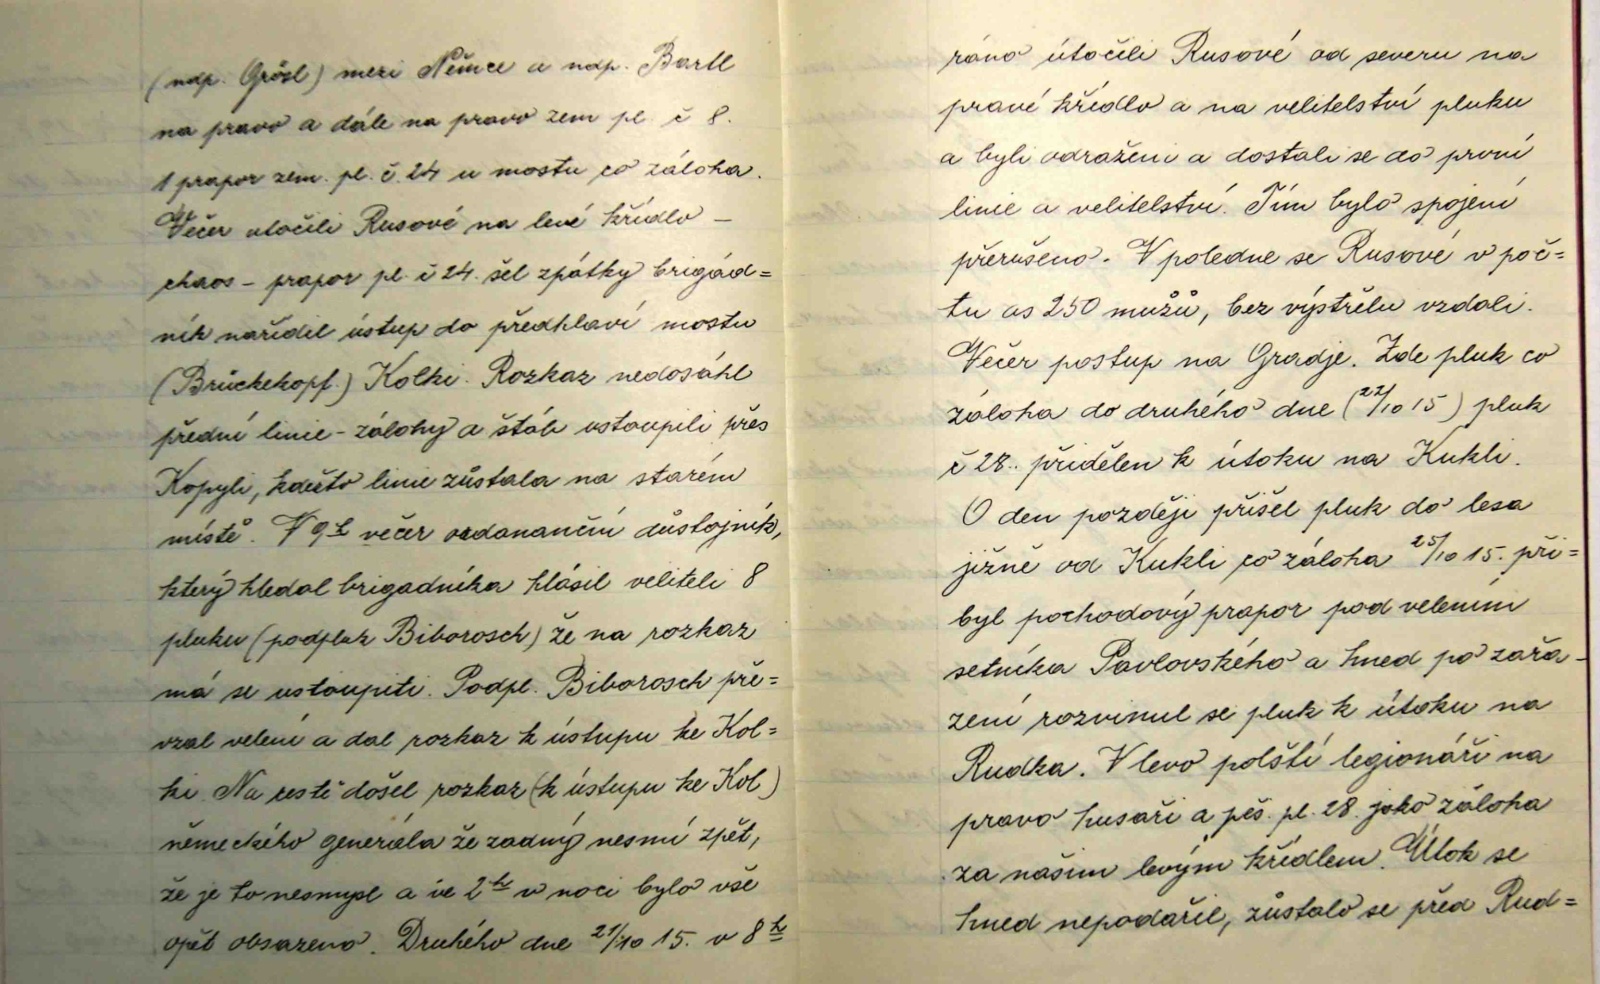 (ndp. Grösl) mezi Němce a ndp. Bartl
na pravo a dále na pravo zem pl. č 8.
1 prapor zem. pl. č. 24 u mostu co záloha.
Večer utočili Rusové na levé křídlo –
chaos – prapor pl. č 24. šel zpátky brigád=
ník nařídil ústup do předhlaví mostu
(Brückekopf.) Kolki. Rozkaz nedosáhl
přední linie – zálohy a štáb ustoupili přes
Kopyli, kdežto linie zůstala na starém
místě. V 9h večer ordonanční důstojník,
který hledal brigadníka hlásil veliteli 8
pluku (podpluk Biborosch) že na rozkaz
má se ustoupiti. Podpl. Biborosch pře=
vzal velení a dal rozkaz k ústupu ke Kol=
ki. Na cestě došel rozkaz (k ústupu ke Kol)
německého generála že zadný nesmí zpět,
že je to nesmysl a ve 2h v noci bylo vše
opět obsazeno. Druhého dne 21/10 15. v 8h
ráno útočili Rusové od severu na
pravé křídlo a na velitelství pluku
a byli odraženi a dostali se do první
linie a velitelství. Tím bylo spojení
přerušeno. V poledne se Rusové v poč=
tu as 250 mužů, bez výstřelu vzdali.
Večer postup na Gradje. Zde pluk co
záloha do druhého dne (22/10 15) pluk
č 28.. přidělen k útoku na Kukli.
O den později přišel pluk do lesa
jižně od Kukli co záloha 25/10 15. při=
byl pochodový prapor pod velením
setníka Pavlovského a hned po zařa-
zení rozvinul se pluk k útoku na
Rudka. V levo polští legionáři na
pravo husaři a pěš. pl. 28. jako záloha
za našim levým křídlem. Útok se
hned nepodařil, zůstalo se před Rud=